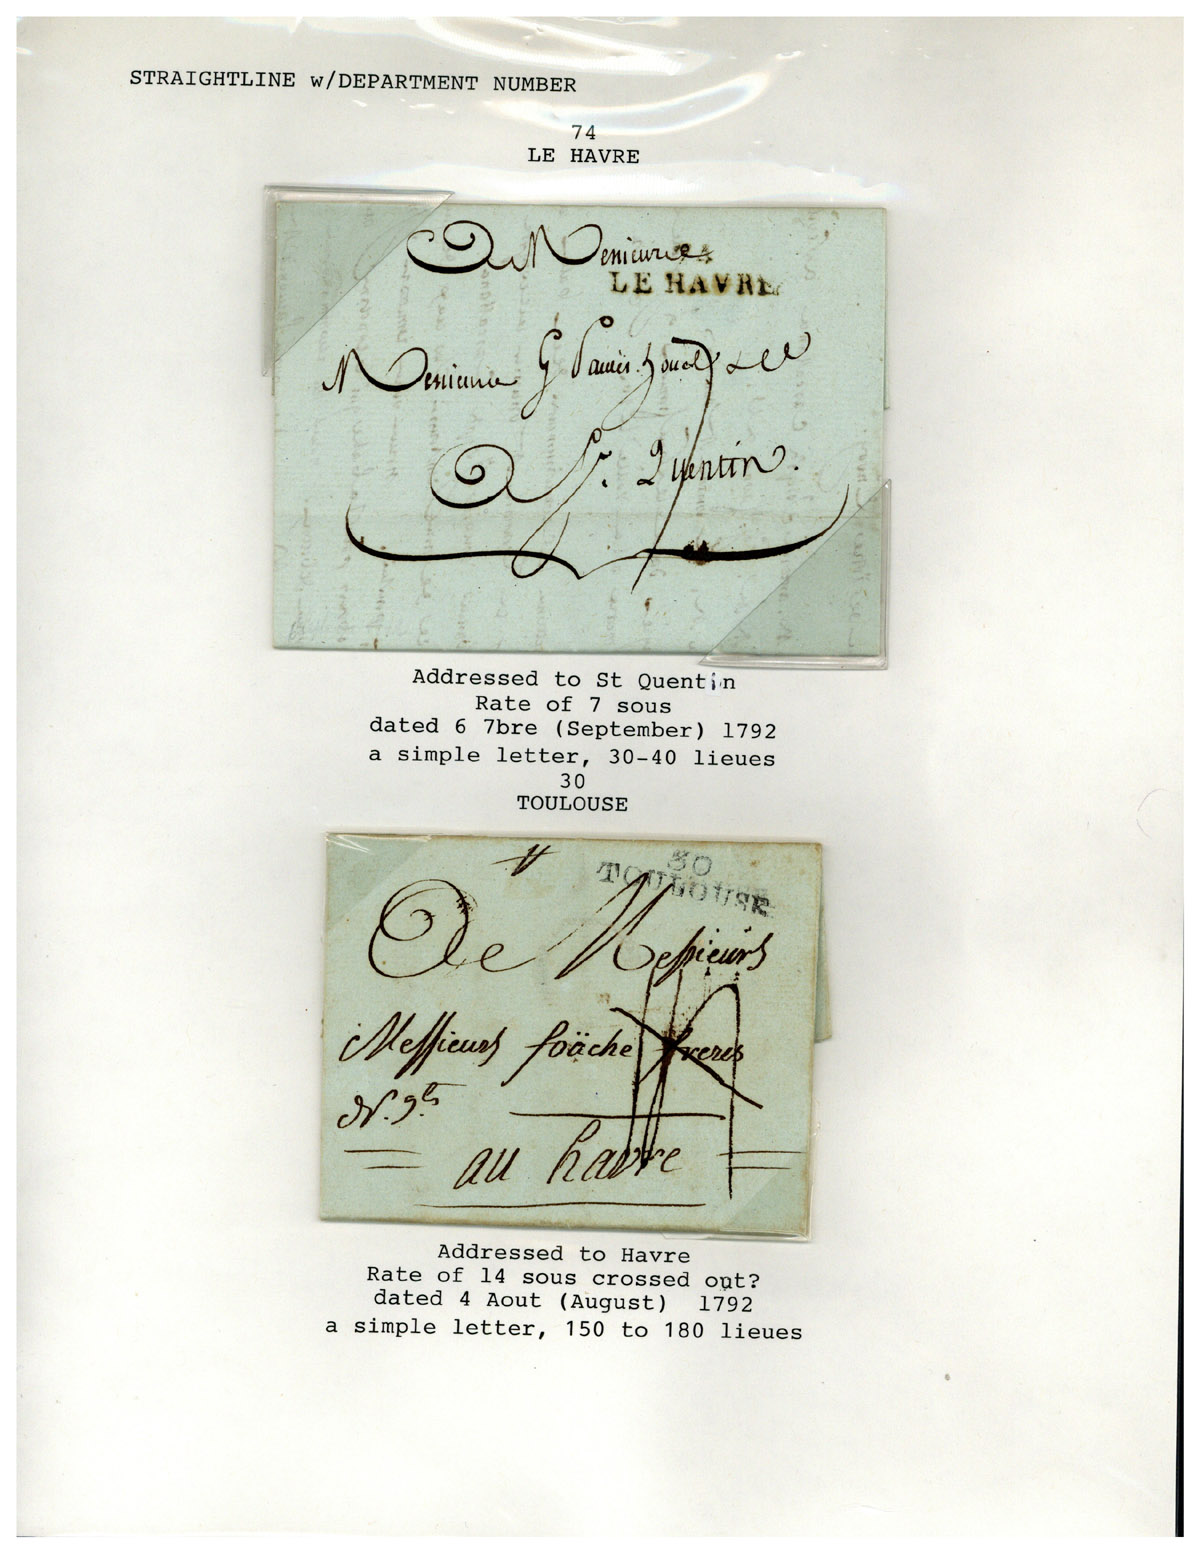 STRAIGHTLINE w/DEPARTMENT NUMBER
74
LE HAVRE
A Messieurs
LE HAVRE
Messieurs G
A St. Quentin.
Addressed to St Quentin
Rate of 7 sous
dated 6 7bre (September) 1792
a simple letter, 30-40 lieues
30
TOULOUSE
30
TOULOUSE
A Messieurs
Messieurs foäche freres
N. g.ts
au havre
Addressed to Havre
Rate of 14 sous crossed out?
dated 4 Aout (August) 1792
a simple letter, 150 to 180 lieues